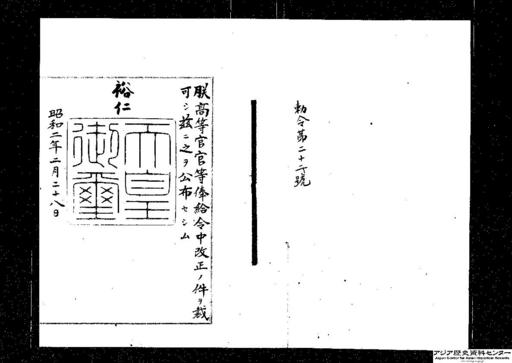 勅令第二十二號
朕高等官官等俸給令中改正ノ件ヲ裁
可シ茲ニ之ヲ公布セシム
裕仁
天皇
御璽
昭和二年二月二十八日
アジア歴史資料センター
Japan Center for Asian Historical Records